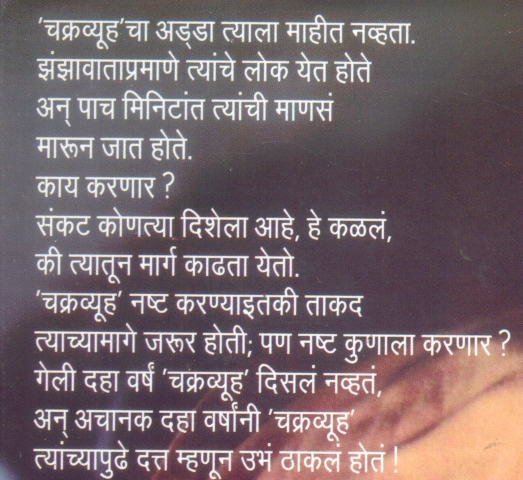 'चक्रव्यूह'चा अड्डा त्याला माहीत नव्हता.
झंझावाताप्रमाणे त्यांचे लोक येत होते
अन् पाच मिनिटांत त्यांची माणसं
मारून जात होते.
काय करणार ?
संकट कोणत्या दिशेला आहे, हे कळलं,
की त्यातून मार्ग काढता येतो.
'चक्रव्यूह' नष्ट करण्याइतकी ताकद
त्याच्यामागे जरूर होती; पण नष्ट कुणाला करणार ?
गेली दहा वर्षं 'चक्रव्यूह' दिसलं नव्हतं,
अन् अचानक दहा वर्षांनी 'चक्रव्यूह'
त्यांच्यापुढे दत्त म्हणून उभं ठाकलं होतं !